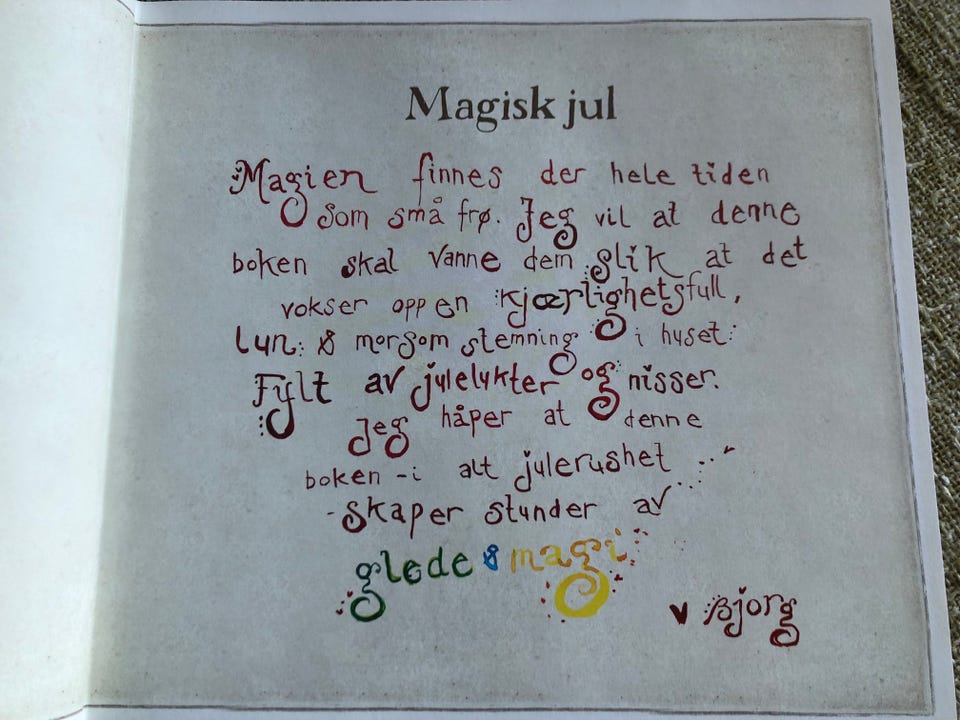 Magisk jul
Magien finnes der hele tiden
som små frø. Jeg vil at denne
boken skal vanne dem slik at det
vokser opp en kjærlighetsfull,
lun & morsom stemning i huset.
Fylt av julelykter og nisser.
Jeg håper at denne
boken - i alt julerushet ...
- skaper stunder av
glede & magi
♥ Bjorg